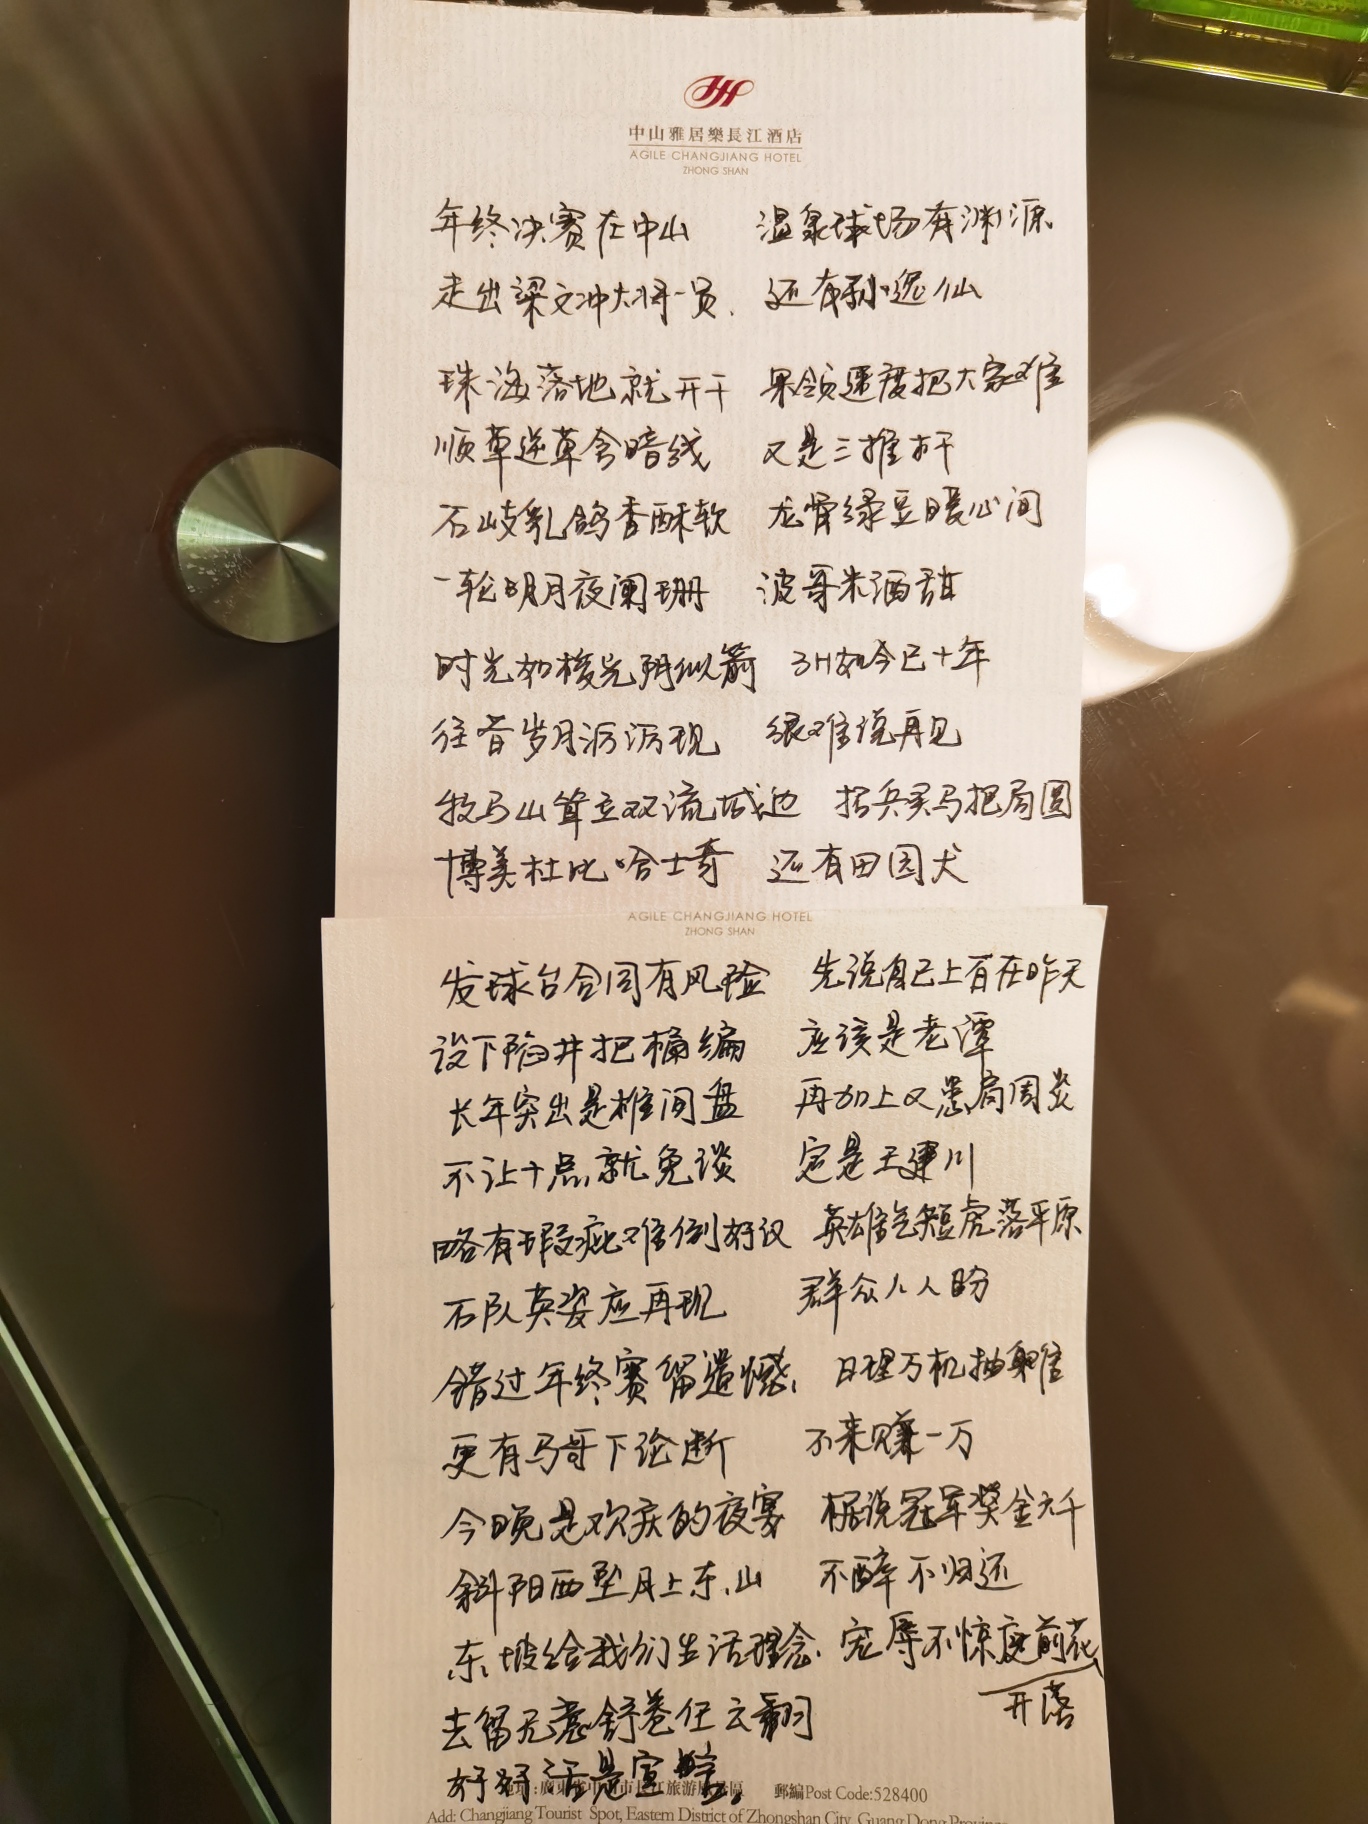 中山雅居樂長江酒店
AGILE CHANGJIANG HOTEL
ZHONG SHAN
年终决赛在中山 温泉球场有渊源
走出梁文冲大将一员. 还有孙逸仙
珠海落地就开干 果领速度把大家难
顺草逆草含暗线 又是三推杆
石岐乳鸽香酥软 龙骨绿豆暖心间
一轮明月夜阑珊 波哥米酒甜
时光如梭光阴似箭 3H如今已十年
往昔岁月历历现 很难说再见
牧马山耸立双流城边 招兵买马把局圆
博美杜比哈士奇 还有田园犬
AGILE CHANGJIANG HOTEL
ZHONG SHAN
发球台合同有风险 先说自己上百在昨天
设下陷井把桶编 应该是老潭
长年突出是椎间盘 再加上又患肩周炎
不让十点就免谈 定是王建川
略有瑕疵难倒好汉 英雄气短虎落平原
石队英姿应再现 群众人人盼
错过年终赛留遗憾, 日理万机抽身难
更有马哥下论断 不来赚一万
今晚是欢庆的夜宴 据说冠军奖金六千
斜阳西坠月上东山 不醉不归还
东坡给我们生活理念. 宠辱不惊庭前花
开落
去留无意舒卷任云翻
好好活是宣言。
郵編Post Code:528400
Add: Changjiang Tourist Spot, Eastern District of Zhongshan City, Guang Dong Province